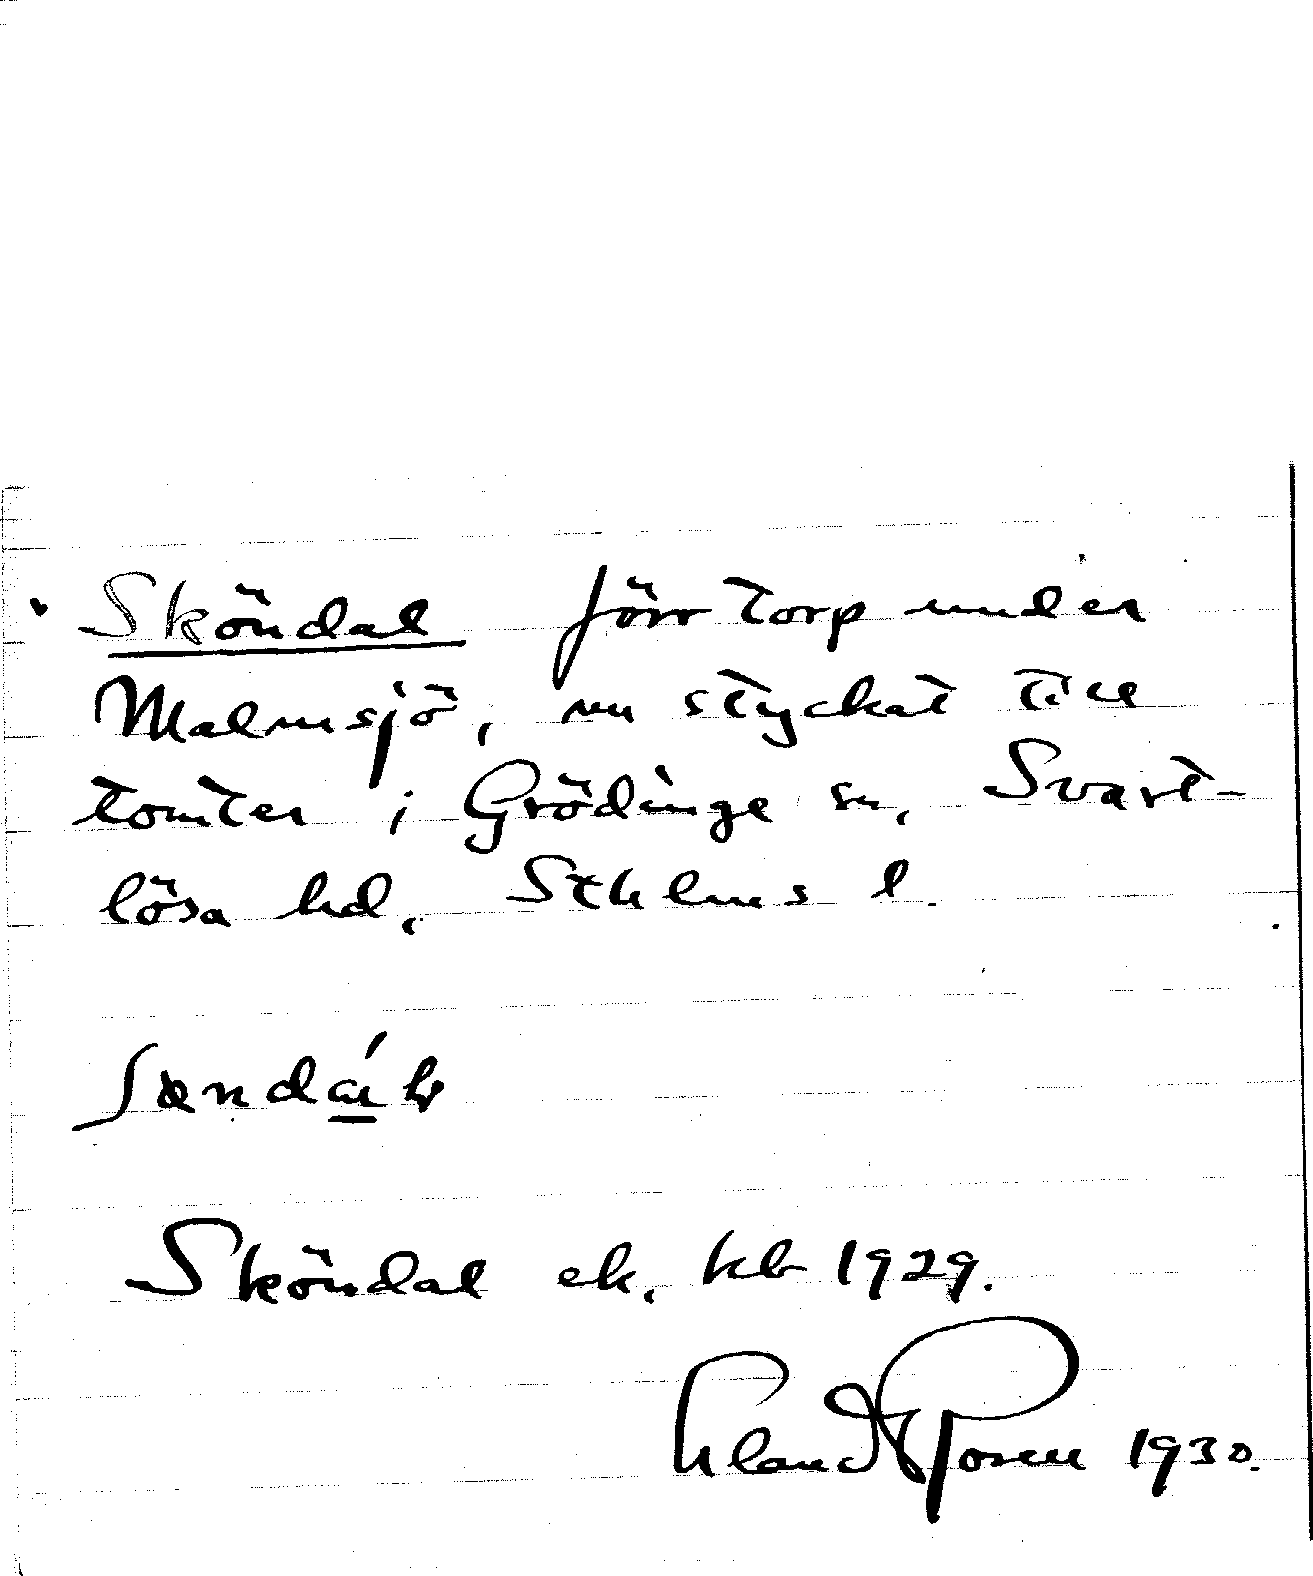 Sköndal förr torp under
Malmsjö, nu styckat till
tomter i Grödinge sn, Svart-
lösa hd, Sthlms l.
Sköndal ek. kb 1929.
Rosén 1930.